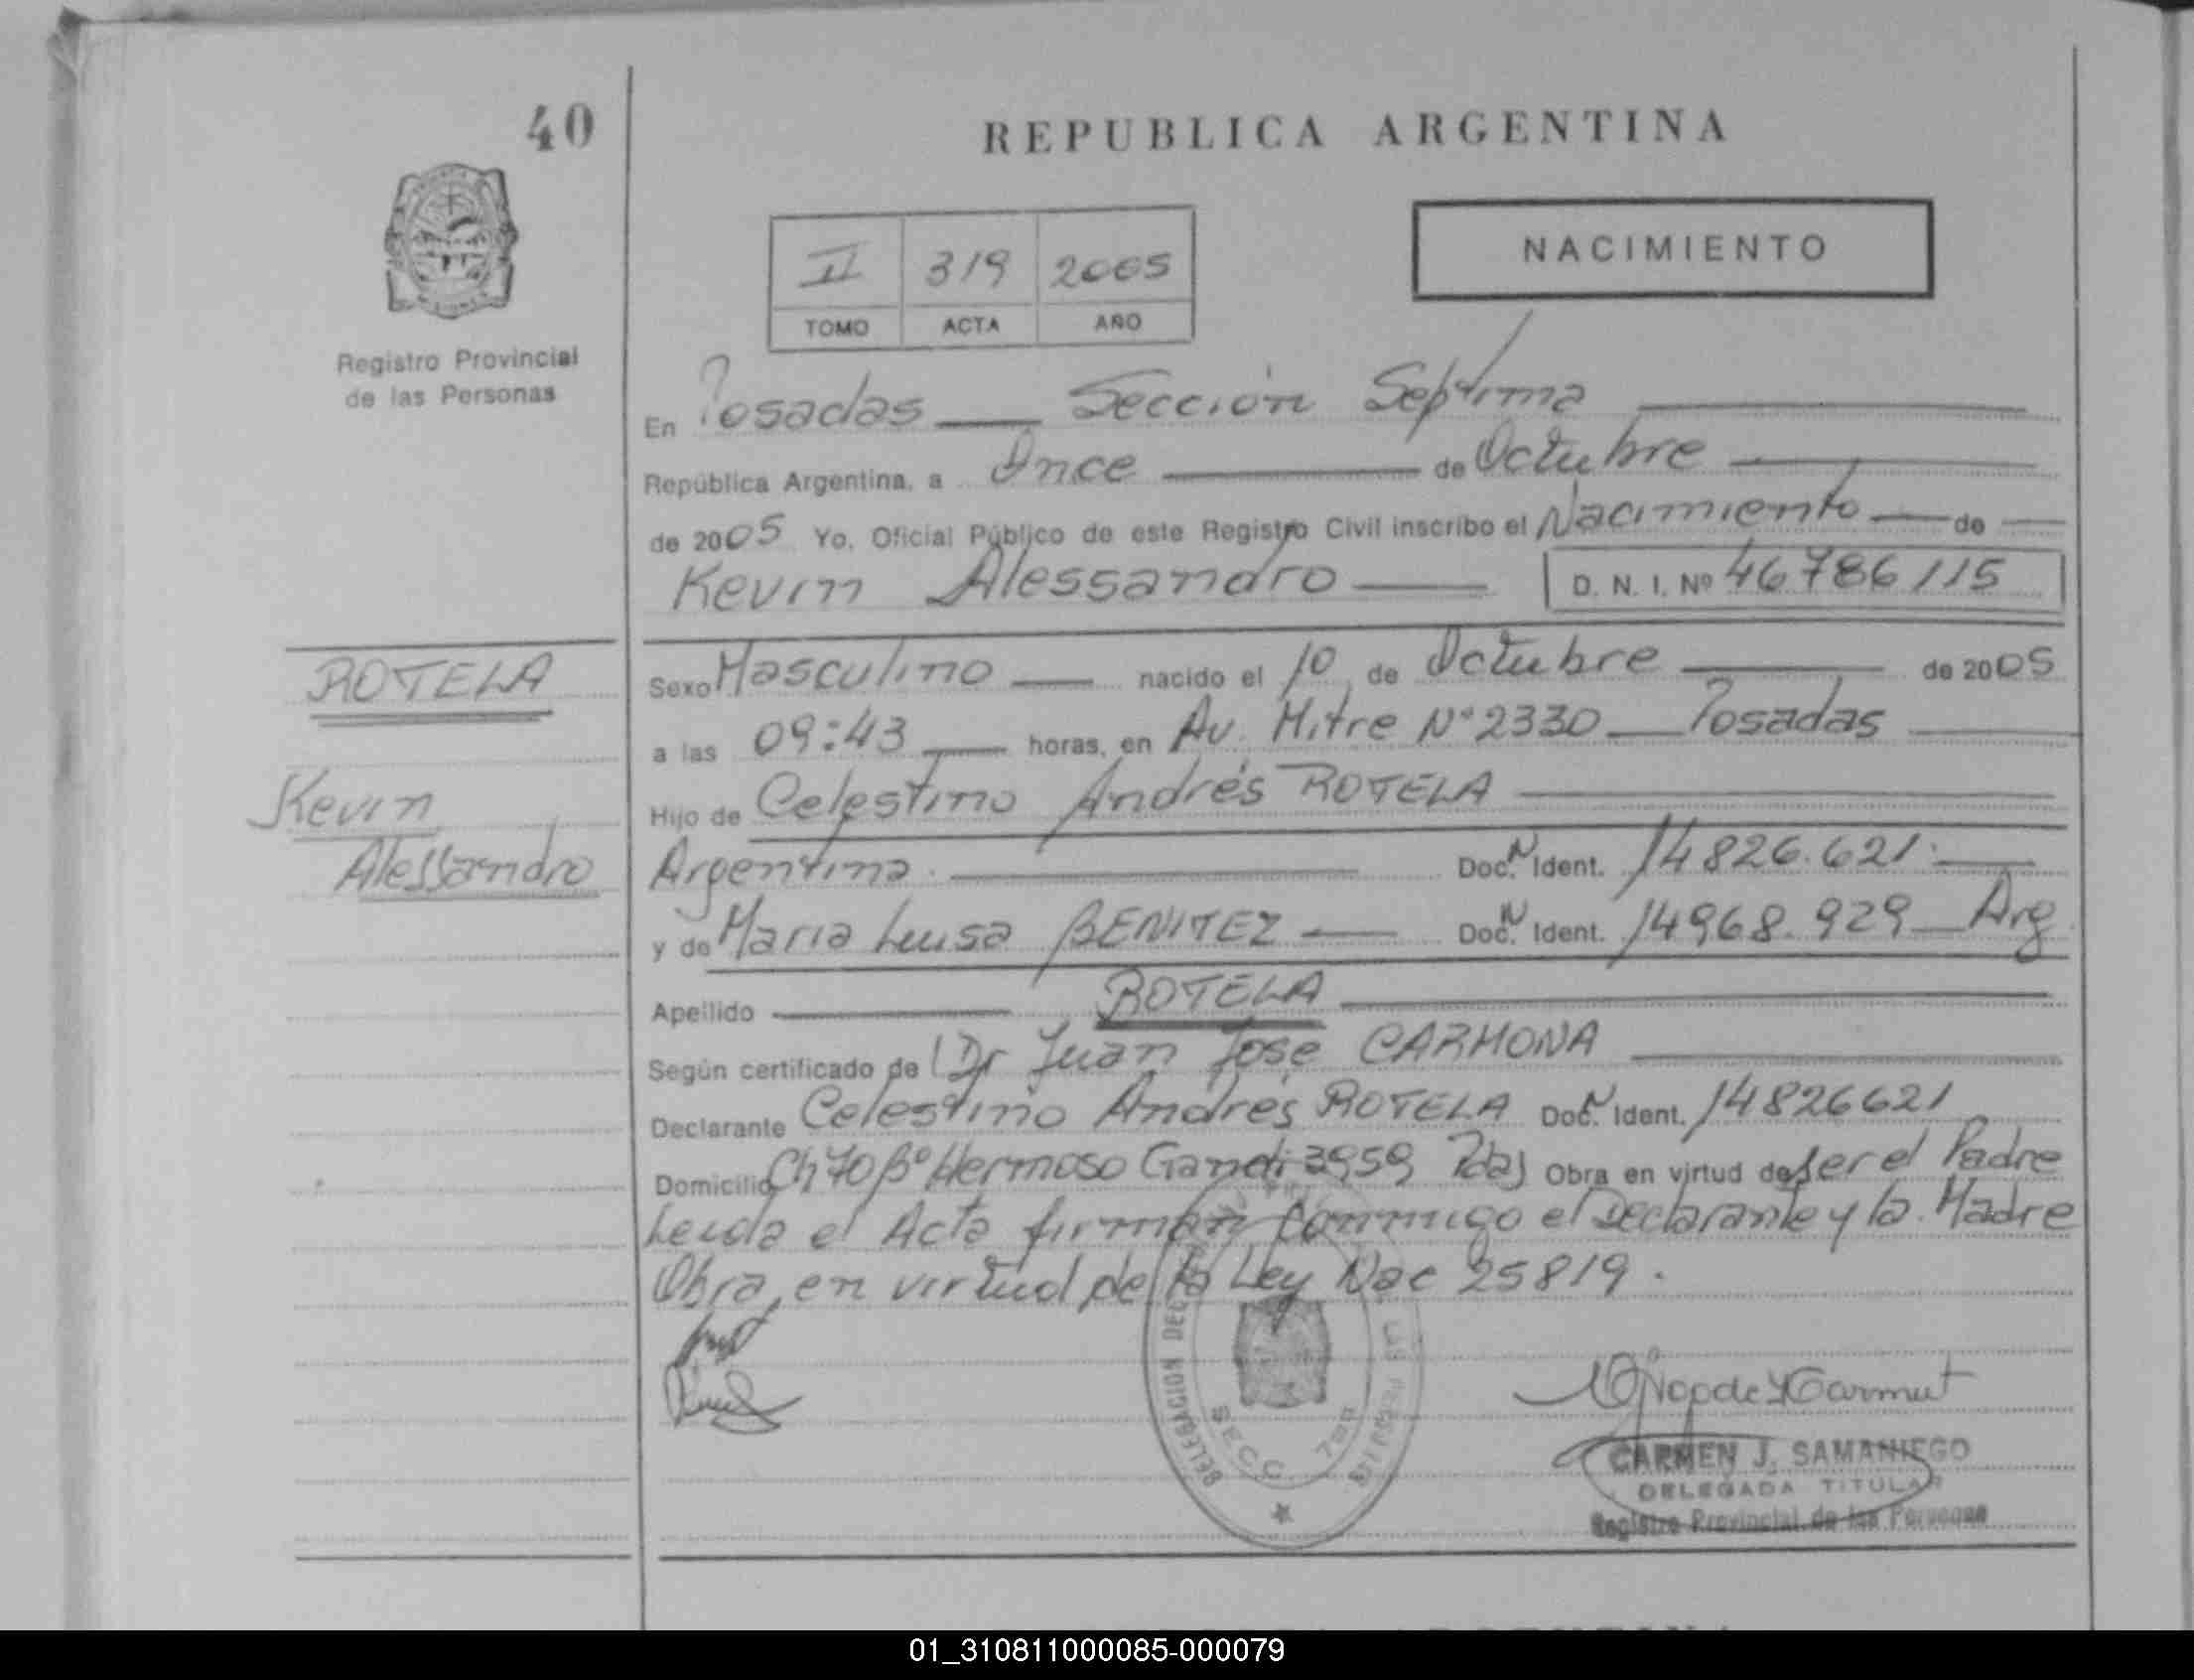 40
REPUBLICA ARGENTINA
NACIMIENTO
II 319 2005
TOMO ACTA AÑO
Registro Provincial
de las Personas
En Posadas Sección Septima
República Argentina, a Once de Octubre
de 2005 Yo, Oficial Público de este Registro Civil inscribo el Nacimiento de
Kevin Alessandro D. N. I. Nº 46786115
ROTELA
Kevin
Alessandro
Sexo Masculino nacido el 10 de Octubre de 2005
a las 09:43 horas, en Av. Mitre Nº 2330 Posadas
Hijo de Celestino Andrés ROTELA
Argentina. Doc. N Ident. 14826.621.
y de Maria Luisa BENITEZ Doc. N Ident. 14968.929 Arg
Apellido ROTELA
Según certificado de Dr Juan José CARMONA
Declarante Celestino Andrés ROTELA Doc. N Ident. 14826621
Domicilio Ch 70 Bº Hermoso Gandi 3959 Pdas Obra en virtud de Ser el Padre
Leida el Acta firman conmigo el Declarante y la Madre
Obra en virtud de la Ley Nac 25819.
DELEGACION
SECC. 7ma
CARMEN J. SAMANIEGO
DELEGADA TITULAR
Registro Provincial de las Personas
01_310811000085-000079